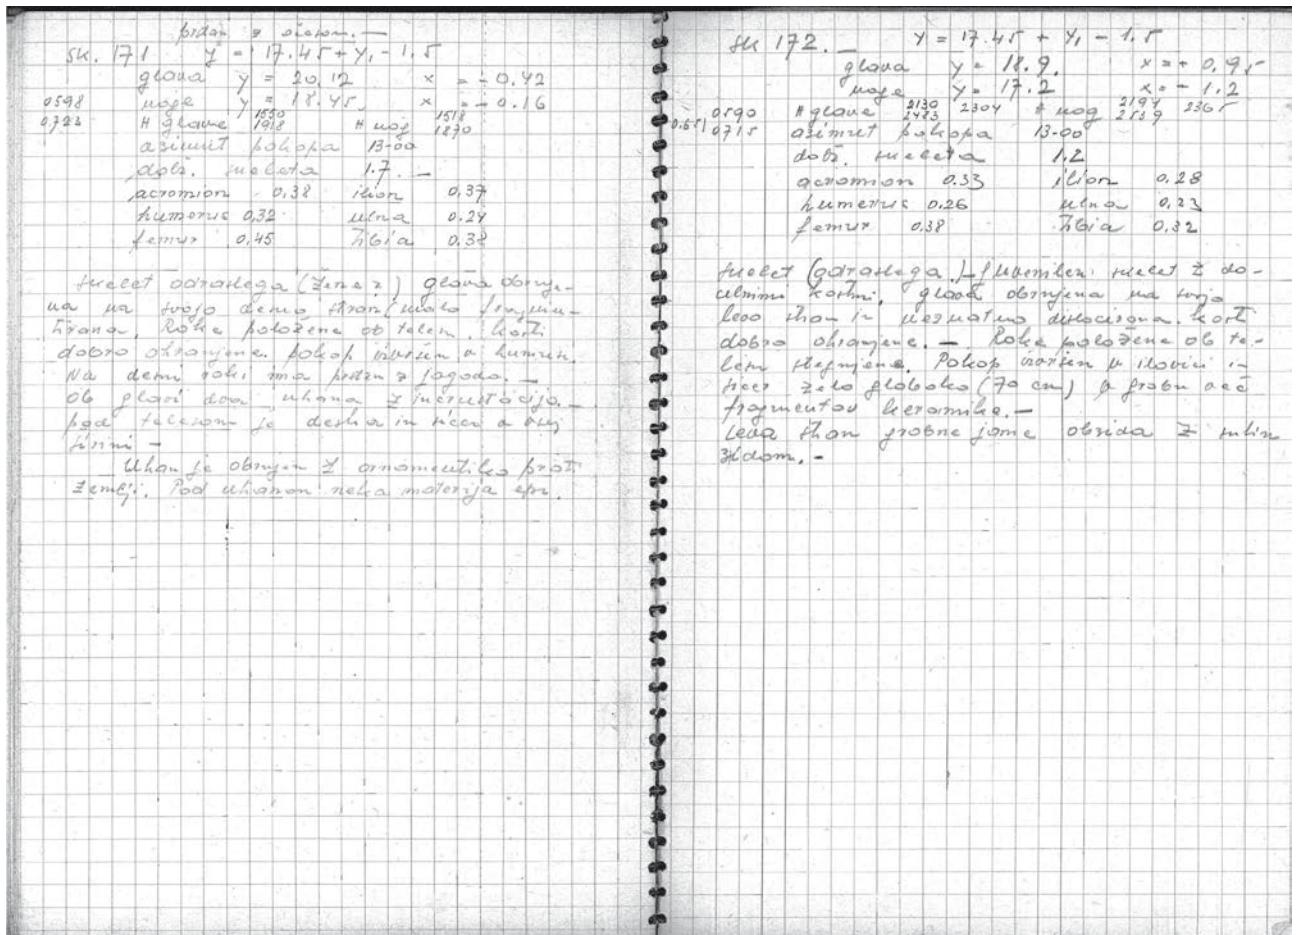 prstan z očesom. —
SK. 171 y = 17.45 + y₁ - 1.5
glava y = 20.12 x = - 0.42
0598 noge y = 18.45. x = - 0.16
0723 # glave 1550 1918 # nog 1518 1870
azimut pokopa 13-00
dolž. skeleta 1.7. —
acromion 0.38 ilion 0.37
humerus 0.32 ulna 0.24
femur 0.45 tibia 0.38
skelet odraslega (žene?) glava obrnje-
na na svojo desno stran (malo fragmen-
tirana. Roke položene ob telesu. Kosti
dobro ohranjene. pokop izvršen v humusu.
Na desni roki ima prstan z jagodo. —
ob glavi dva uhana z incrustacijo. —
pod telesom je deska in sicer v vsej
širini —
Uhan je obrnjen z ornamentiko proti
zemlji. Pod uhanom neka materija
SK 172. — y = 17.45 + y₁ - 1.5
glava y = 18.9. x = + 0.95
noge y = 17.2 x = - 1.2
0590 # glave 2130 2483 2304 # nog 2194 2539 2365
0.651 0715 azimut pokopa 13-00
dolž. skeleta 1.2
acromion 0.33 ilion 0.28
humerus 0.26 ulna 0.23
femur 0.38 tibia 0.32
skelet (odraslega) — juvenilen skelet z
kostmi, glava obrnjena na svojo
levo stran in neznatno dislocirana. Kosti
dobro ohranjene. — Roke položene ob te-
lesu stegnjene. Pokop izvršen v ilovici in
sicer zelo globoko (70 cm) v grobu več
fragmentov keramike. —
Leva stran grobne jame obzida z suhim
zidom. —